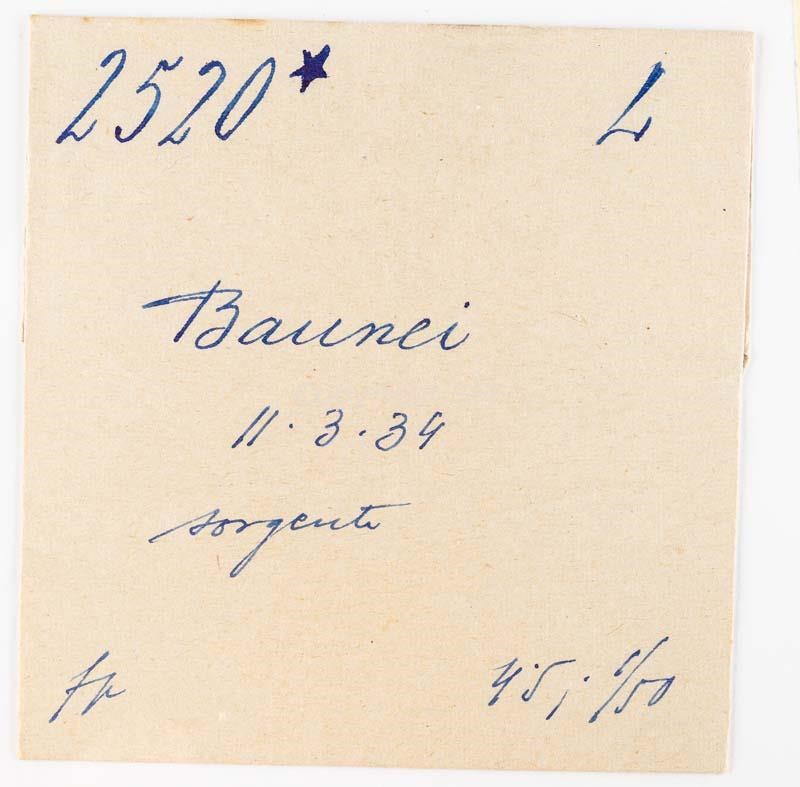 2520* L
Baunei
11.3.34
sorgente
fp 4.5; 1/50